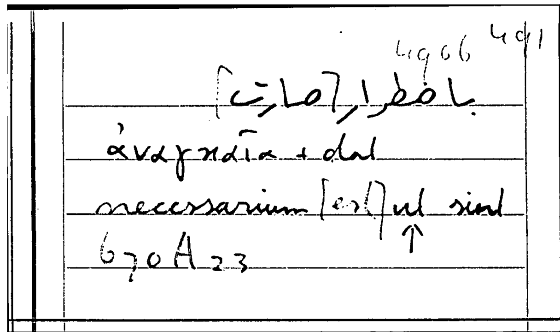 4966 491
باضطرار [صارت]
ἀναγκαῖα + dat
necessarium [est] ut sint
↑
670 A 23